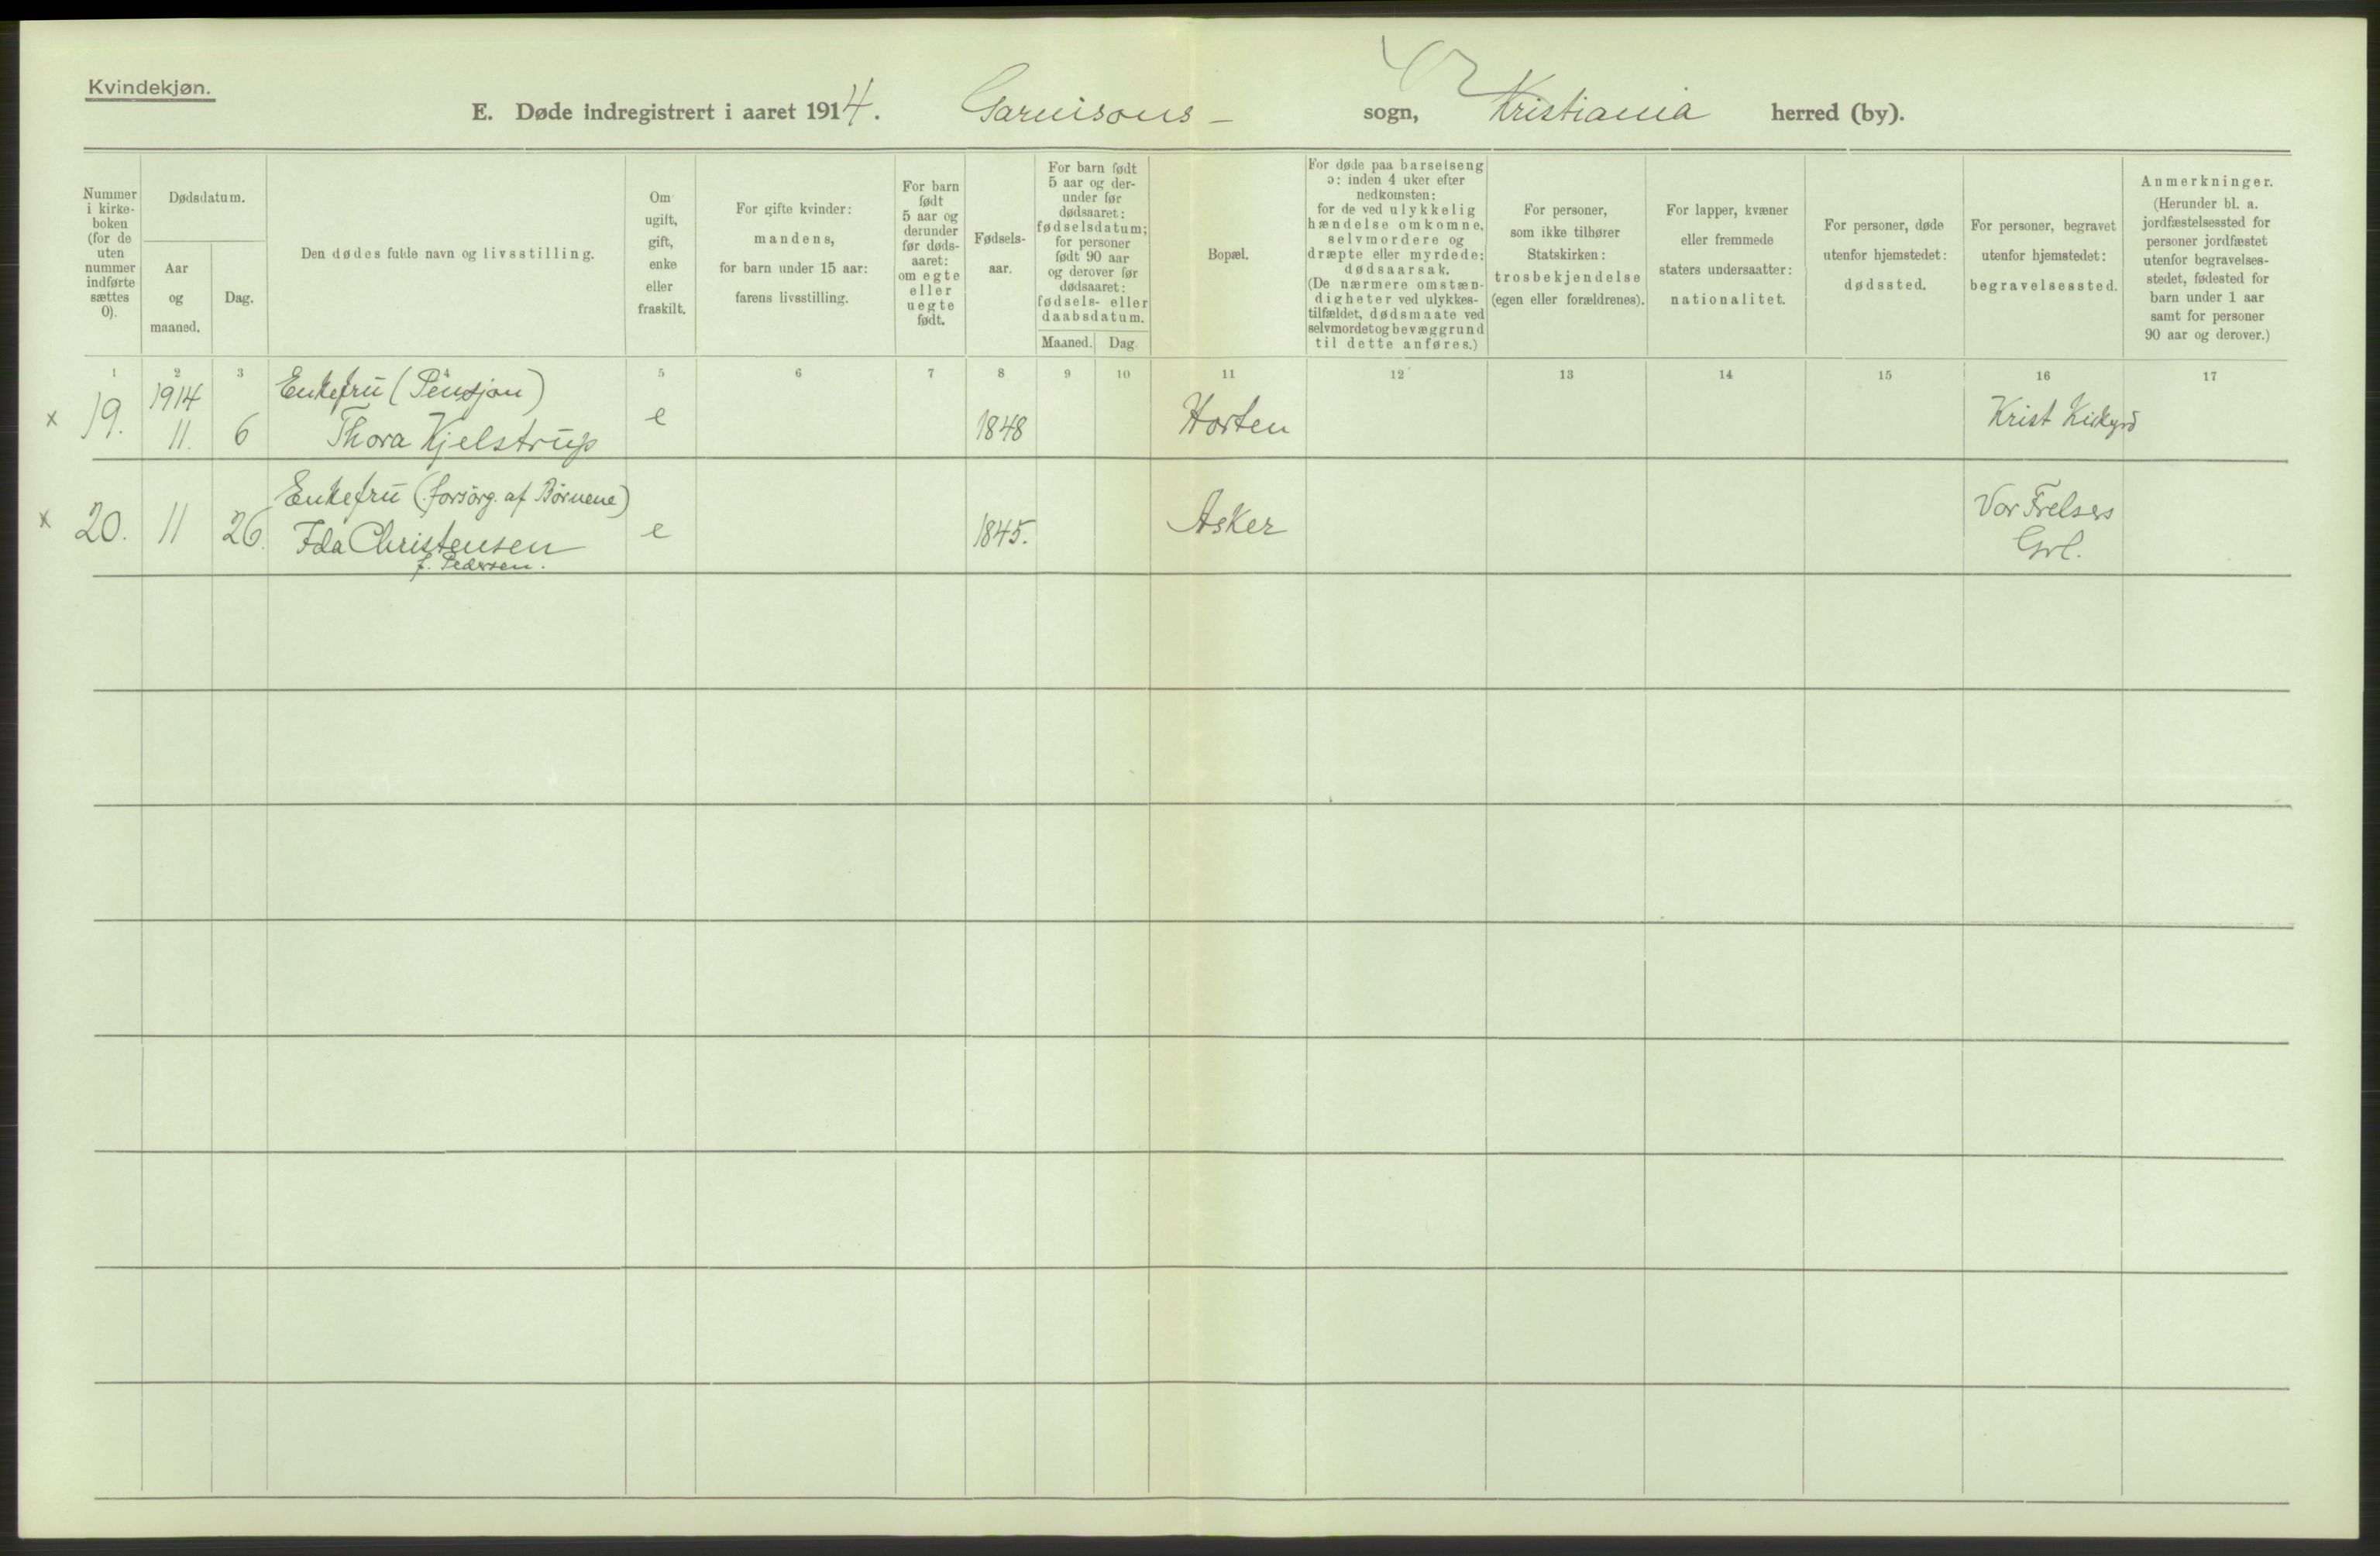 Kvindekjøn.
E. Døde indregistrert i aaret 1914. Garnisons- sogn, Kristiania herred (by).
42
Nummer
i kirke-
boken
(for de
uten
nummer
indførte
sættes
0).
Dødsdatum.
Aar
og
maaned.
Dag.
Den dødes fulde navn og livsstilling.
Om
ugift,
gift,
enke
eller
fraskilt.
For gifte kvinder:
mandens,
for barn under 15 aar:
farens livsstilling.
For barn
født
5 aar og
derunder
før døds-
aaret:
om egte
eller
uegte
født.
Fødsels-
aar.
For barn født
5 aar og der-
under før
dødsaaret:
fødselsdatum;
for personer
født 90 aar
og derover før
dødsaaret:
fødsels- eller
daabsdatum.
Maaned. Dag.
Bopæl.
For døde paa barselseng
ɔ: inden 4 uker efter
nedkomsten:
for de ved ulykkelig
hændelse omkomne,
selvmordere og
dræpte eller myrdede:
dødsaarsak.
(De nærmere omstæn-
digheter ved ulykkes-
tilfældet, dødsmaate ved
selvmordet og bevæggrund
til dette anføres.)
For personer,
som ikke tilhører
Statskirken:
trosbekjendelse
(egen eller forældrenes).
For lapper, kvæner
eller fremmede
staters undersaatter:
nationalitet.
For personer, døde
utenfor hjemstedet:
dødssted.
For personer, begravet
utenfor hjemstedet:
begravelsessted.
Anmerkninger.
(Herunder bl. a.
jordfæstelsessted for
personer jordfæstet
utenfor begravelses-
stedet, fødested for
barn under 1 aar
samt for personer
90 aar og derover.)
1 2 3 5 6 7 8 9 10 11 12 13 14 15 16 17
1914 Enkefru (Pensjon)
x 19. 11. 6 Thora Kjelstrup e 1848 Horten Krist Kirkgrd
Enkefru (forsörg. af Børnene) Vor Frelsers
x 20. 11 26. Ida Christensen e 1845. Asker Grl.
f. Pedersen.